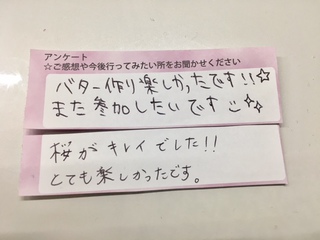 アンケート
☆ご感想や今後行ってみたい所をお聞かせください
バター作り楽しかったです!!☆
また参加したいです☺☆☆
桜がキレイでした!!
とても楽しかったです。